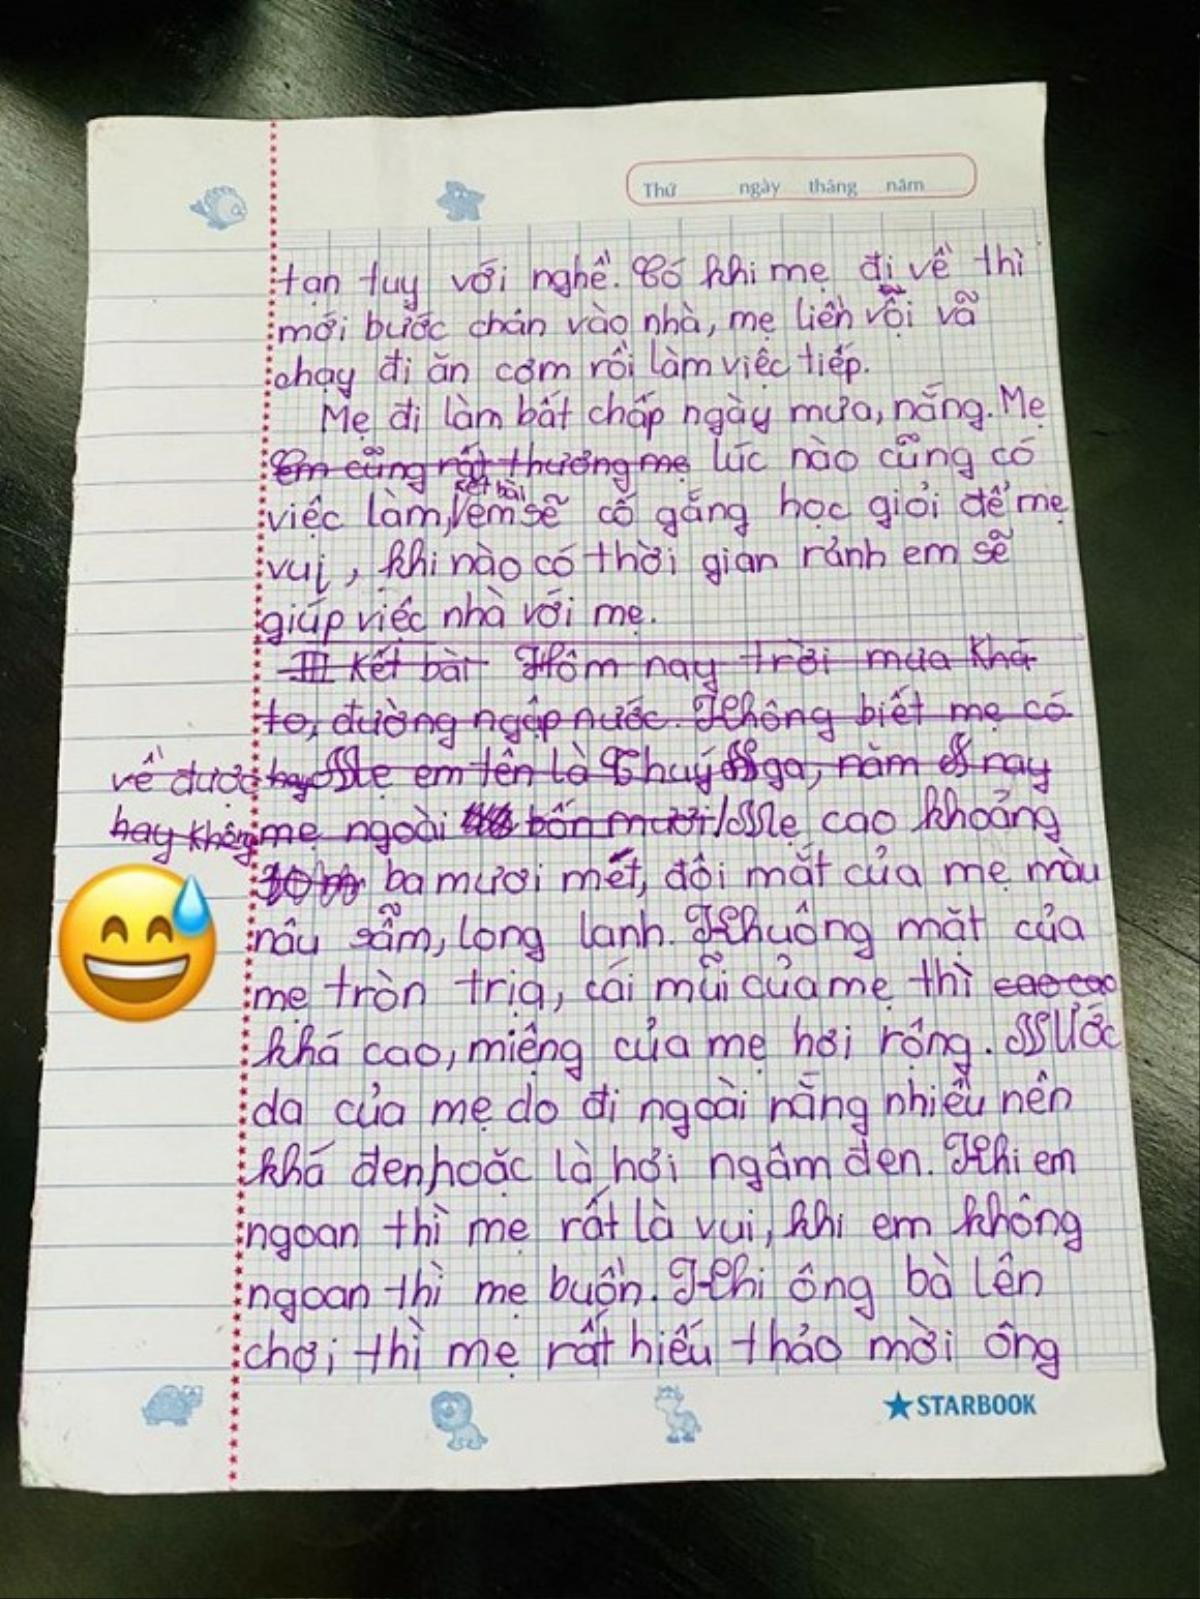 Thứ ngày tháng năm
tạn tuy với nghề. Có khi mẹ đi về thì
mới bước chân vào nhà, mẹ liền vội vã
chạy đi ăn cơm rồi làm việc tiếp.
Mẹ đi làm bất chấp ngày mưa, nắng. Mẹ
Em cũng rất thương mẹ lúc nào cũng có
kết bài
việc làm, em sẽ cố gắng học giỏi để mẹ
vui, khi nào có thời gian rảnh em sẽ
giúp việc nhà với mẹ.
III Kết bài Hôm nay trời mưa khá
to, đường ngập nước. Không biết mẹ có
về được hay Mẹ em tên là Thuý Nga, năm nay
hay không mẹ ngoài bốn mươi Mẹ cao khoảng
ba mươi mét, đôi mắt của mẹ màu
nâu sẫm, long lanh. Khuông mặt của
mẹ tròn trịa, cái mũi của mẹ thì cao cao
khá cao, miệng của mẹ hơi rộng. Nước
da của mẹ do đi ngoài nắng nhiều nên
khá đen, hoặc là hơi ngâm đen. Khi em
ngoan thì mẹ rất là vui, khi em không
ngoan thì mẹ buồn. Khi ông bà lên
chơi thì mẹ rất hiếu thảo mời ông
STARBOOK